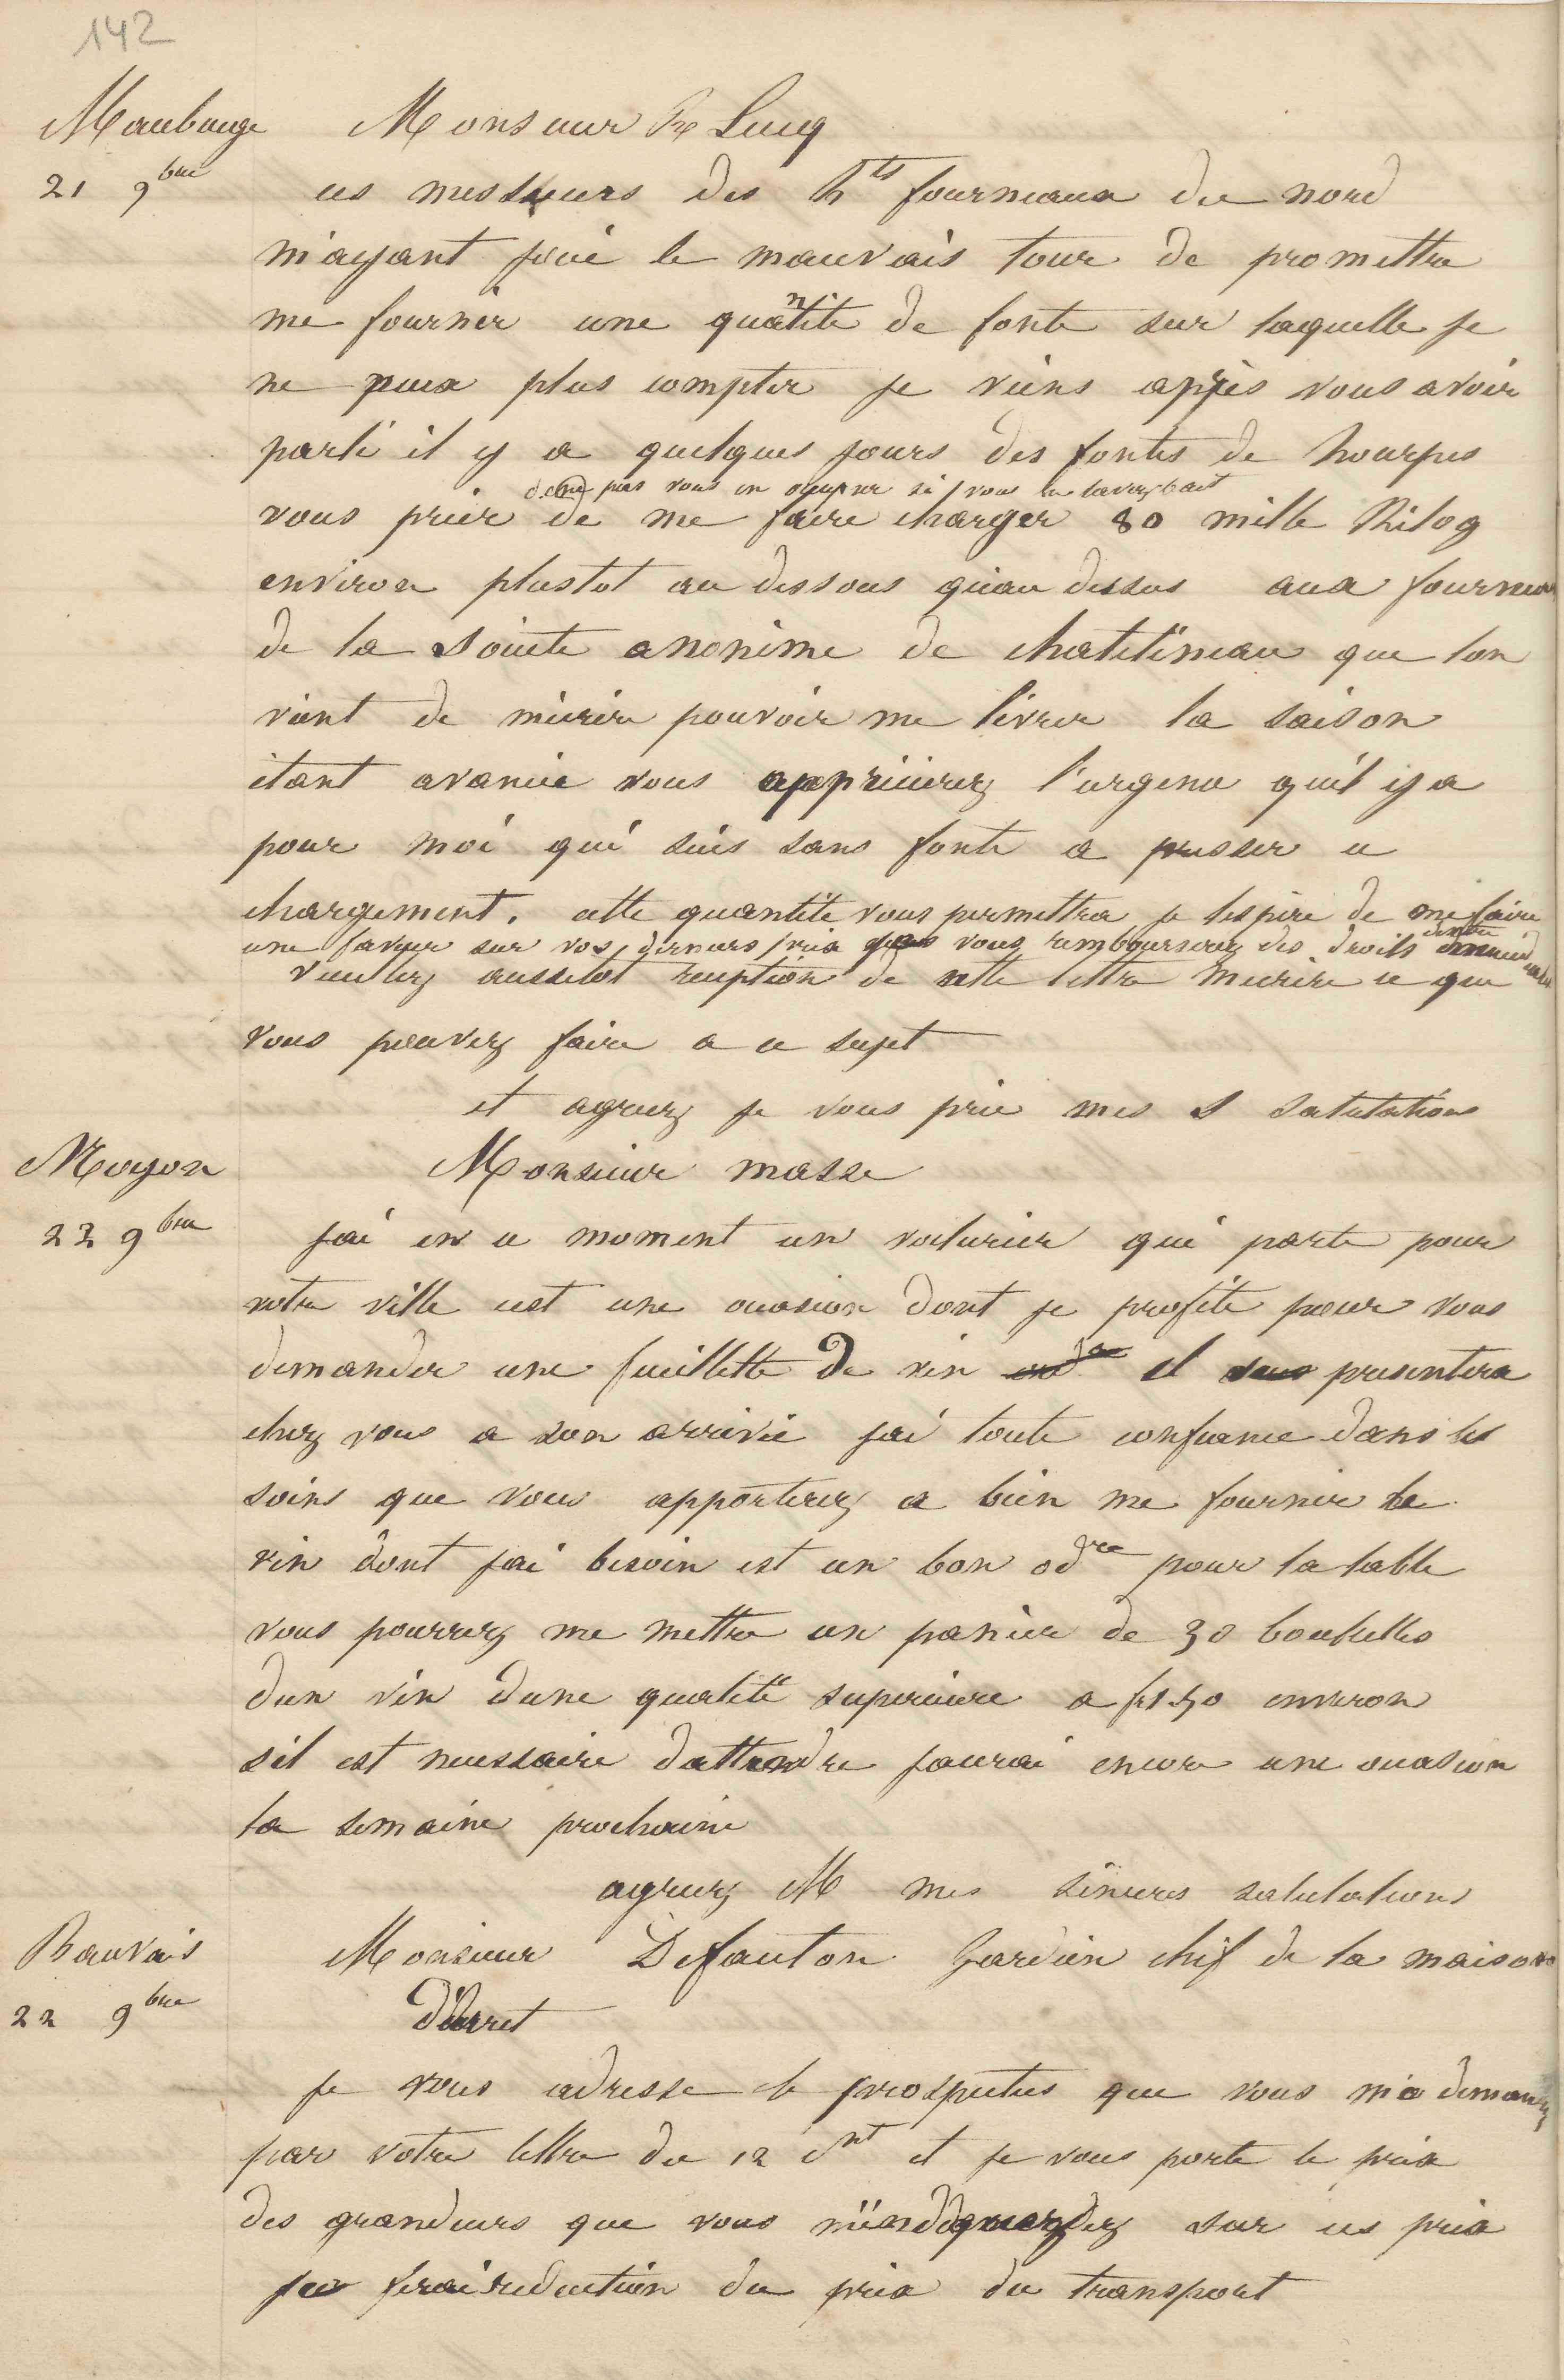 142
Maubeuge
21 9bre
Monsieur Pre Lucq
ces messieurs des hts fourneaux du nord
m'ayant joué le mauvais tour de promettre
me fournir une quantité de fonte sur laquelle je
ne peux plus compter je viens après vous avoir
parlé il y a quelques jours des fontes de hourpes
de ne pas vous en occuper si vous ne lavez fait
vous prier de me faire charger 80 mille Kilog
environ plustot au dessous qu'au dessus aux fourneaux
de la société anonime de chatelineau que lon
vient de mécrire pouvoir me livrer la saison
étant avancée vous apprécierez l'urgence qu'il y a
pour moi qui suis sans fonte a presser ce
chargement. cette quantité vous permettra je lespère de me faire
une faveur sur vos derniers prix vous rembourserez des droits
Veuillez aussitot reception de cette lettre mecrire ce que
vous pouvez faire a ce sujet
et agreez je vous prie mes S salutations
Noyon
22 9bre
Monsieur masse
jai en ce moment un voiturier qui parte pour
votre ville cest une ocasion dont je profite pour vous
demander une feuillette de vin il presentera
chez vous a son arrivée jai toute confiance dans les
soins que vous apporterez a bien me fournir le
vin dont jai besoin est un bon odre pour la table
vous pourrez me mettre un panier de 30 bouteilles
dun vin dune qualité superieure a f 1.50 environ
sil est necessaire dattendre jaurai encore une ocasion
la semaine prochaine
agreez M mes sincères salutations
Bauvais
22 9bre
Monsieur Defauton Gardien chef de la maison
d'arret
je vous adresse le prospectus que vous m'a demandez
par votre lettre du 12 Cnt et je vous porte le prix
des grandeurs que vous m'indiquez sur ces prix
je ferai reduction du prix du transport